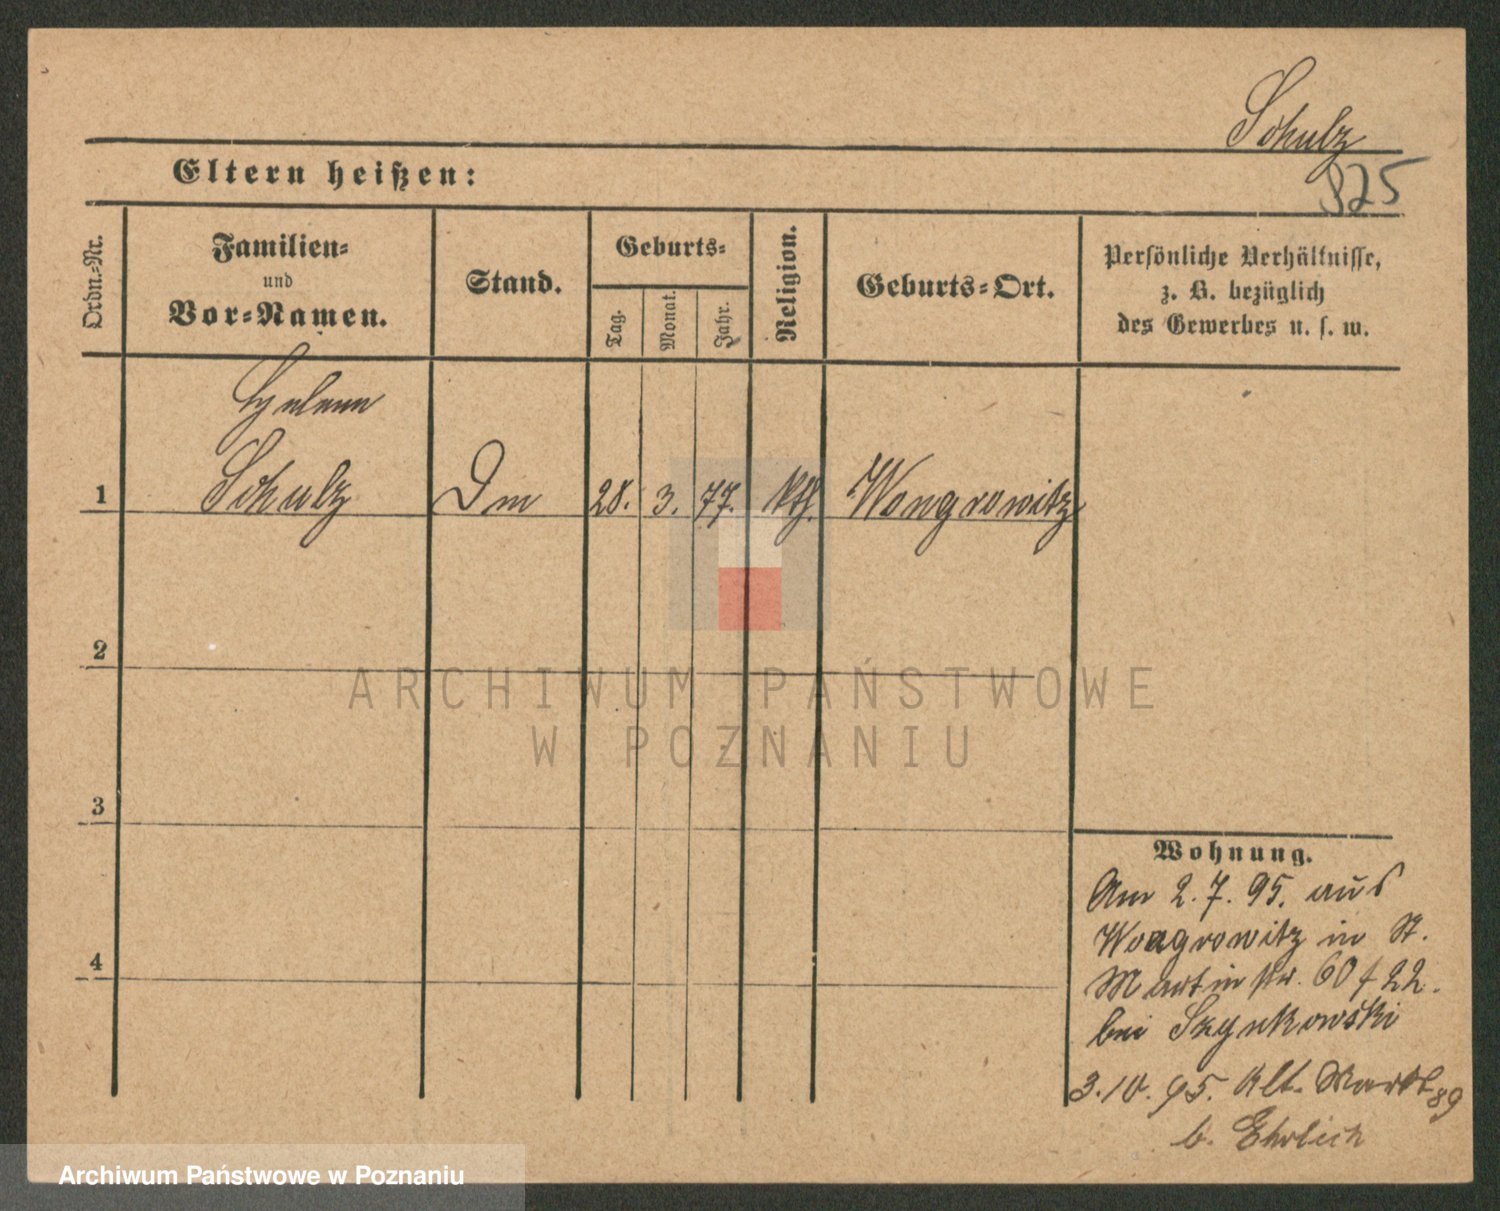 Schulz
Eltern heißen:
825
Ordn.-Nr.
Familien-
und
Vor-Namen.
Stand.
Geburts-
Tag.
Monat.
Jahr.
Religion.
Geburts-Ort.
Persönliche Verhältnisse,
z. B. bezüglich
des Gewerbes u. s. w.
Helene
1 Schulz Dm 28. 3. 77. kth. Wongrowitz
2
3
4
Wohnung.
Am 2.7.95. aus
Wongrowitz in St.
Martin str. 60 f 22.
bei Szynkowski
3.10.95. Alt. Markt 89
b. Ehrlich
ARCHIWUM PAŃSTWOWE
W POZNANIU
Archiwum Państwowe w Poznaniu